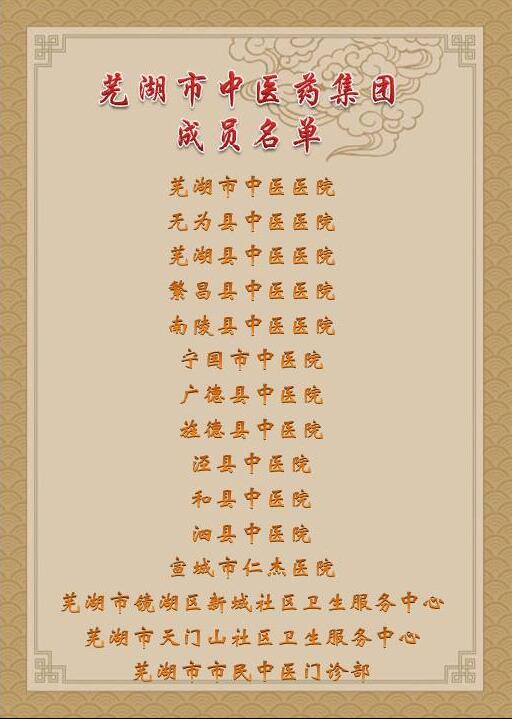 芜湖市中医药集团
成员名单
芜湖市中医医院
无为县中医医院
芜湖县中医医院
繁昌县中医医院
南陵县中医医院
宁国市中医院
广德县中医院
旌德县中医院
泾县中医院
和县中医院
泗县中医院
宣城市仁杰医院
芜湖市镜湖区新城社区卫生服务中心
芜湖市天门山社区卫生服务中心
芜湖市市民中医门诊部